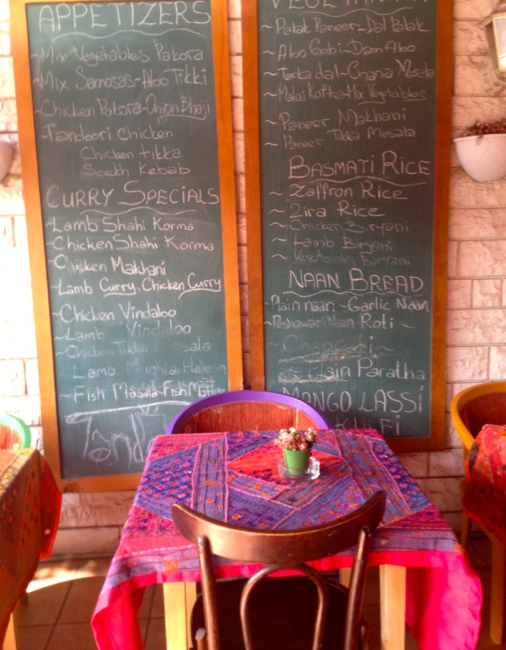 APPETIZERS
~Mix Vegetables Pakora
~Mix Samosas~Aloo Tikki
~Chicken Pakora~Onion Bhaji
~Tandoori Chicken
Chicken Tikka
Seekh Kebab
CURRY SPECIALS
~Lamb Shahi Korma
~Chicken Shahi Korma
~Chicken Makhani
~Lamb Curry, Chicken Curry
~Chicken Vindaloo
~Lamb Vindaloo
~Chicken Tikka Masala
Lamb Mughlai
~Fish Masala~Fish
~Palak Paneer~Dal Palak
~Aloo Gobi~Dam Aloo
~Tarka dal~Chana Masala
~Malai Kofta~Mix Vegetables
~Paneer Makhani
~Paneer Tikka Masala
BASMATI RICE
~Zaffron Rice
~Zira Rice
~Chicken Biryani
~Lamb Biryani
~Vegetables Biryani
NAAN BREAD
~Plain naan~Garlic Naan
~Peshawari Naan Roti~
~Plain Paratha
MONGO LASSI